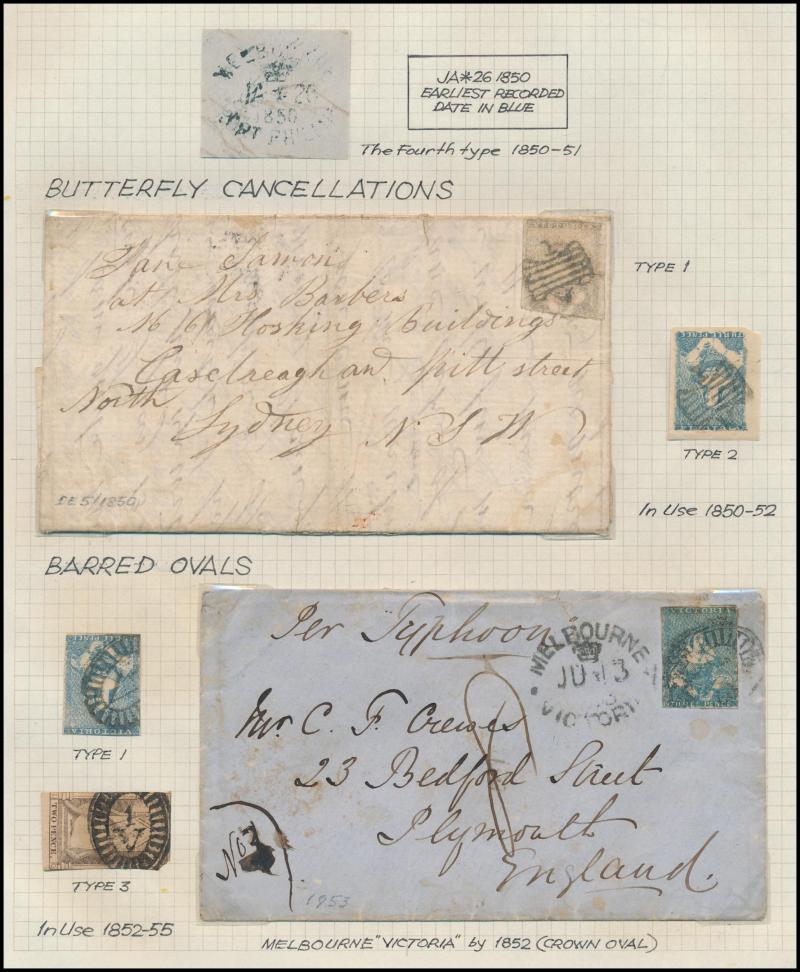 MELBOURNE
JA * 26
1850
PORT PHILLIP
JA*26 1850
EARLIEST RECORDED
DATE IN BLUE
The Fourth type 1850-51
BUTTERFLY CANCELLATIONS
Jane
at Mrs Barbers
No 6 Hosking Buildings
Castlereagh and Pitt street
North
Sydney N S W
DE 5/1850
TYPE 1
THREE PEACE
TYPE 2
In Use 1850-52
BARRED OVALS
VICTORIA
TYPE 1
TWO PENCE
1
V
TYPE 3
In Use 1852-55
Per Typhoon
MELBOURNE
JU 13
VICTORIA
VICTORIA
THREE PENCE
Mr C. F. Crewes
23 Bedford Street
Plymouth
England.
No 7
1953
MELBOURNE "VICTORIA" by 1852 (CROWN OVAL)